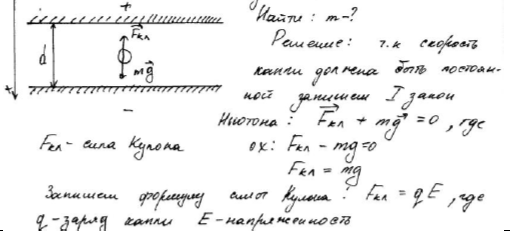 +
Найти: m-?
d
F⃗кл
Решение: т.к скорость
капли должена быть постоян-
mg⃗
ной запишем I закон
-
Ньютона: F⃗кл + mg⃗ = 0, где
Fкл - сила Кулона
ox: Fкл - mg=0
Fкл = mg
Запишем формулу силы Кулона: Fкл = qE, где
q-заряд капли E-напряженность